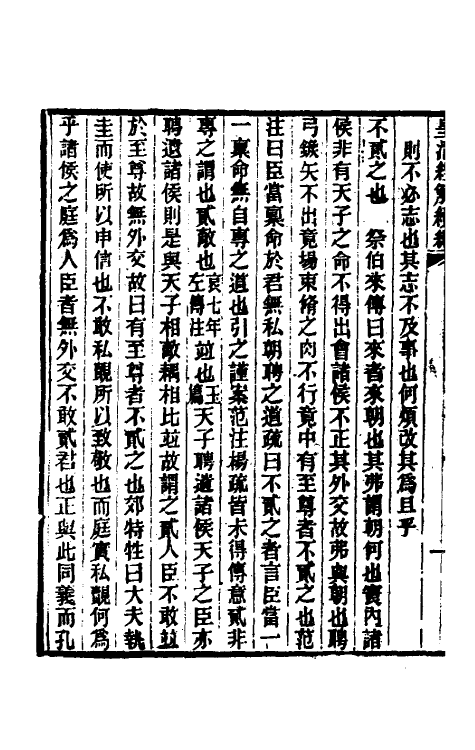 皇清經解續編
則不必志也其志不及事也何煩改其為且乎
不貳之也　祭伯來傳曰來者來朝也其弗謂朝何也寰內諸
侯非有天子之命不得出會諸侯不正其外交故弗與朝也聘
弓鍭矢不出竟場束脩之肉不行竟中有至尊者不貳之也范
注曰臣當稟命於君無私朝聘之道疏曰不貳之者言臣當一
一稟命無自專之道也引之謹案范注楊疏皆未得傳意貳非
專之謂也貳敵也哀七年左傳注竝也玉篇天子聘遺諸侯天子之臣亦
聘遺諸侯則是與天子相敵耦相比竝故謂之貳人臣不敢竝
於至尊故無外交故曰有至尊者不貳之也郊特牲曰大夫執
圭而使所以申信也不敢私覿所以致敬也而庭實私覿何為
乎諸侯之庭為人臣者無外交不敢貳君也正與此同義而孔